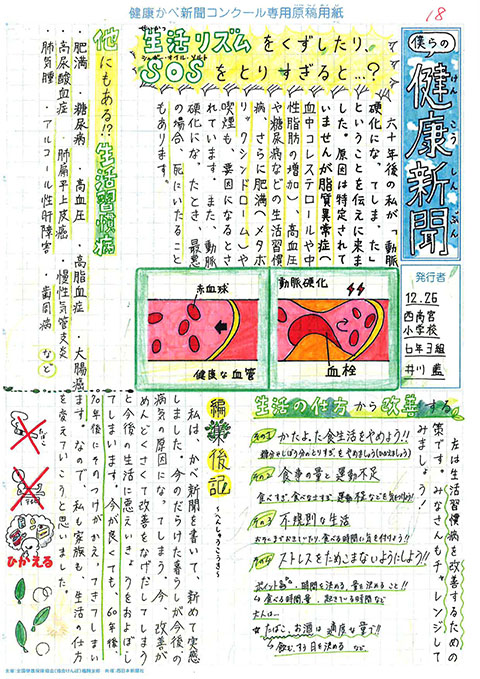 健康かべ新聞コンクール専用原稿用紙
18
僕らの
健康新聞
けんこうしんぶん
発行者
12.26
西南宮
小学校
6年3組
井川 藍
生活リズムをくずしたり、
せいかつ
SOSをとりすぎると…?
シュガー・オイル・ソルト
六十年後の私が「動脈
硬化になってしまった」
ということを伝えに来ま
した。原因は特定されて
いませんが脂質異常症(
血中コレステロールや中
性脂肪の増加)、高血圧
や糖尿病などの生活習慣
病、さらに肥満(メタボ
リックシンドローム)や
喫煙も、要因になるとさ
れています。また、動脈
硬化になったとき、最悪
の場合、死にいたること
もあります。
他にもある!?生活習慣病
・肥満 ・糖尿病 ・高血圧 ・高脂血症 ・大腸癌
・高尿酸血症 ・肺扁平上皮癌 ・慢性気管支炎
・肺気腫 ・アルコール性肝障害 ・歯周病 など
動脈硬化
血栓
赤血球
健康な血管
生活の仕方から改善する
左は生活習慣病を改善するための
策です。みなさんもチャレンジして
みましょう!
その1 かたよった食生活をやめよう!!
その2 食事の量と運動不足
食べすぎ、食べなさすぎ、運動不足などを気を付けよう!
その3 不規則な生活
その4 ストレスをためこまないようにしよう!!
ポイント
・時間を決める、量を決めること!!
↳食べる時間、量、起きている時間など
大人は…
☆たばこ、お酒は適度な量で!!
↳飲む、すう日を決める など
編集後記
~へんしゅうこうき~
私は、かべ新聞を書いて、新めて実感
しました。今のだらけた暮らしが今後の
病気の原因になってしまう、今、改善が
めんどくさくて改善をなげだしてしまう
と今後の生活に悪えいきょうをおよぼし
てしまいます。今が良くても、60年後、
70年後にそのつけがかえってきてしまい
ます。なので、私も家族も、生活の仕方
を変えていこうと思いました。
ひかえる
主催:全国健康保険協会(協会けんぽ)福岡支部 共催:西日本新聞社